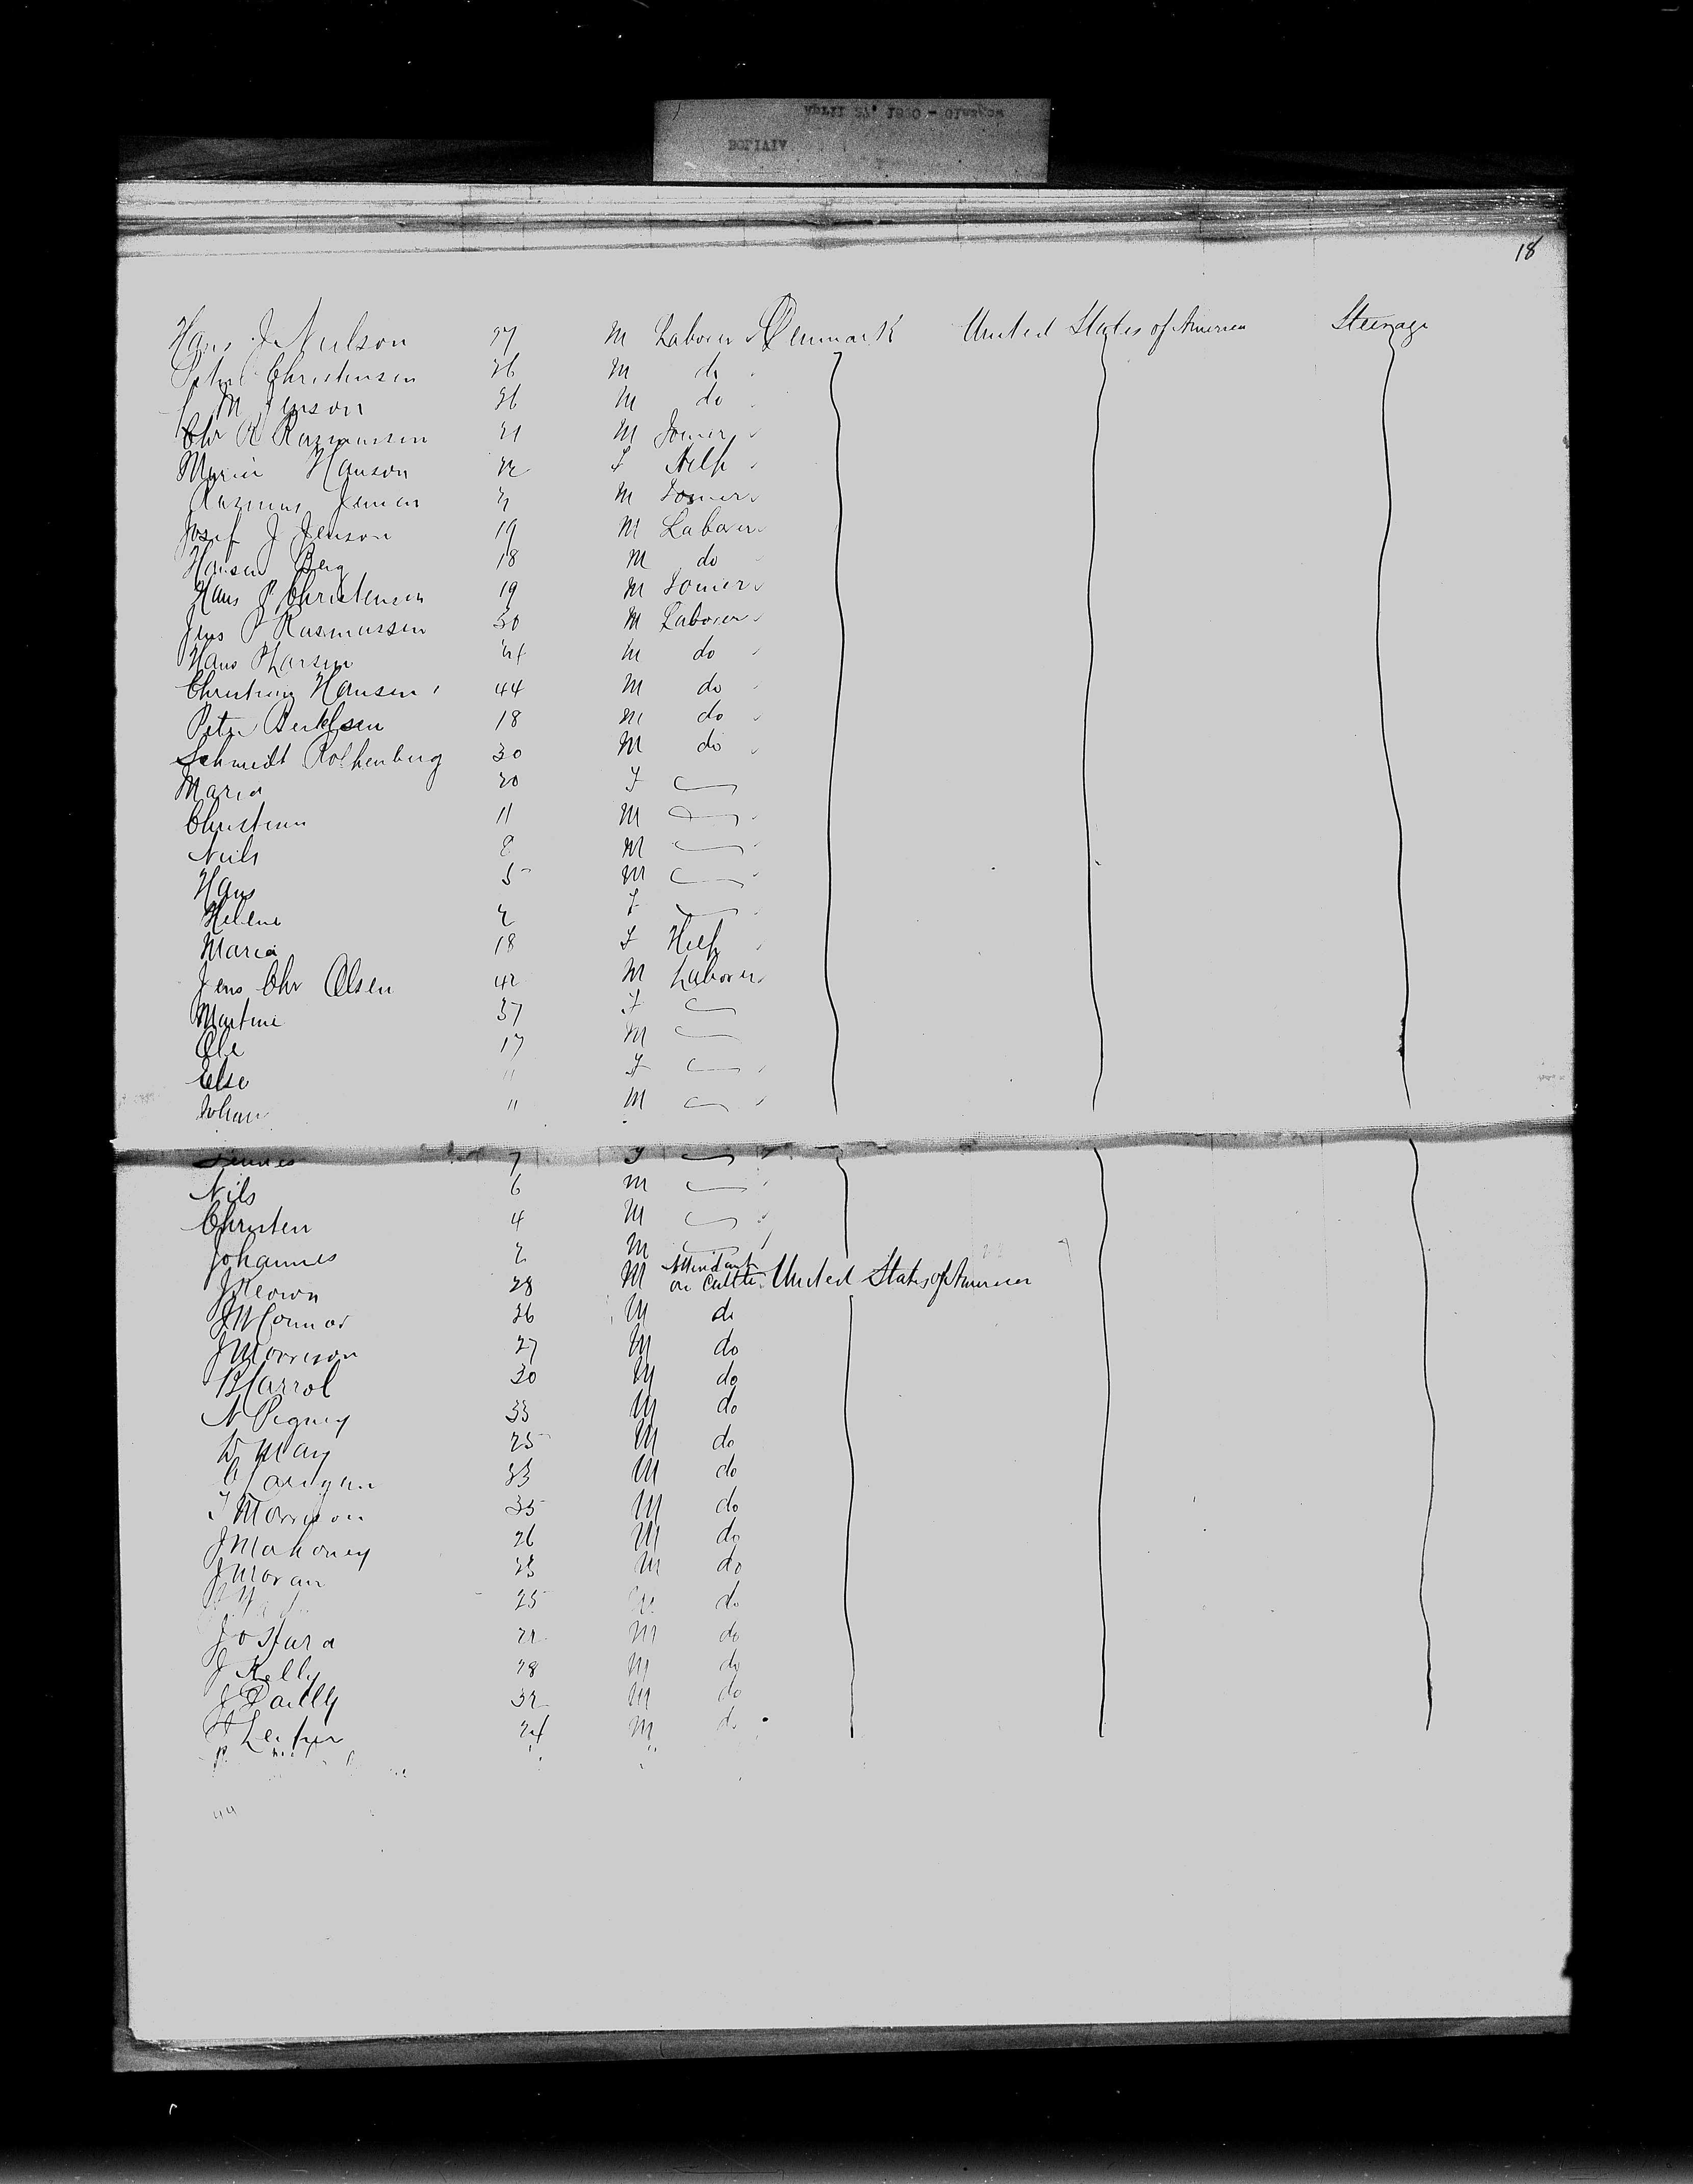 18
Hans J Nielson 27 M Laborer Denmark United States of America Steerage
Peter Christensen 26 M do
M Jenson 26 M do
Chr R Rasmussen 21 M Joiner
Maria Hanson 22 F Help
Rasmus Jensen M Joiner
Josef J Jenson 19 M Laborer
Hansen Berg 18 M do
Hans P Christensen 19 M Joiner
Jens P Rasmussen 30 M Laborer
Hans P Larsen 24 M do
Christian Hansen 44 M do
Peter Bertelsen 18 M do
Schmidt Rothenberg 30 M do
Maria 20 F
Christian 11 M
Neils 8 M
Hans 5 M
Helene 2 F
Maria 18 F Help
Jens Chr Olsen 42 M Laborer
Martine 37 F
Ole 17 M
Else 11 F
Johan 11 M
7 F
Nils 6 M
Christen 4 M
Johannes 2 M
J Keown 28 M Attendant on Cattle United States of America
J McConnor 26 M do
J Morrison 27 M do
B Carrol 30 M do
N Pegney 33 M do
W May 25 M do
23 M do
T Morrison 35 M do
J Mahoney 26 M do
J Moran 23 M do
25 M do
J O'Hara 22 M do
J Kelly 28 M do
J Dailly 32 M do
24 M do
44